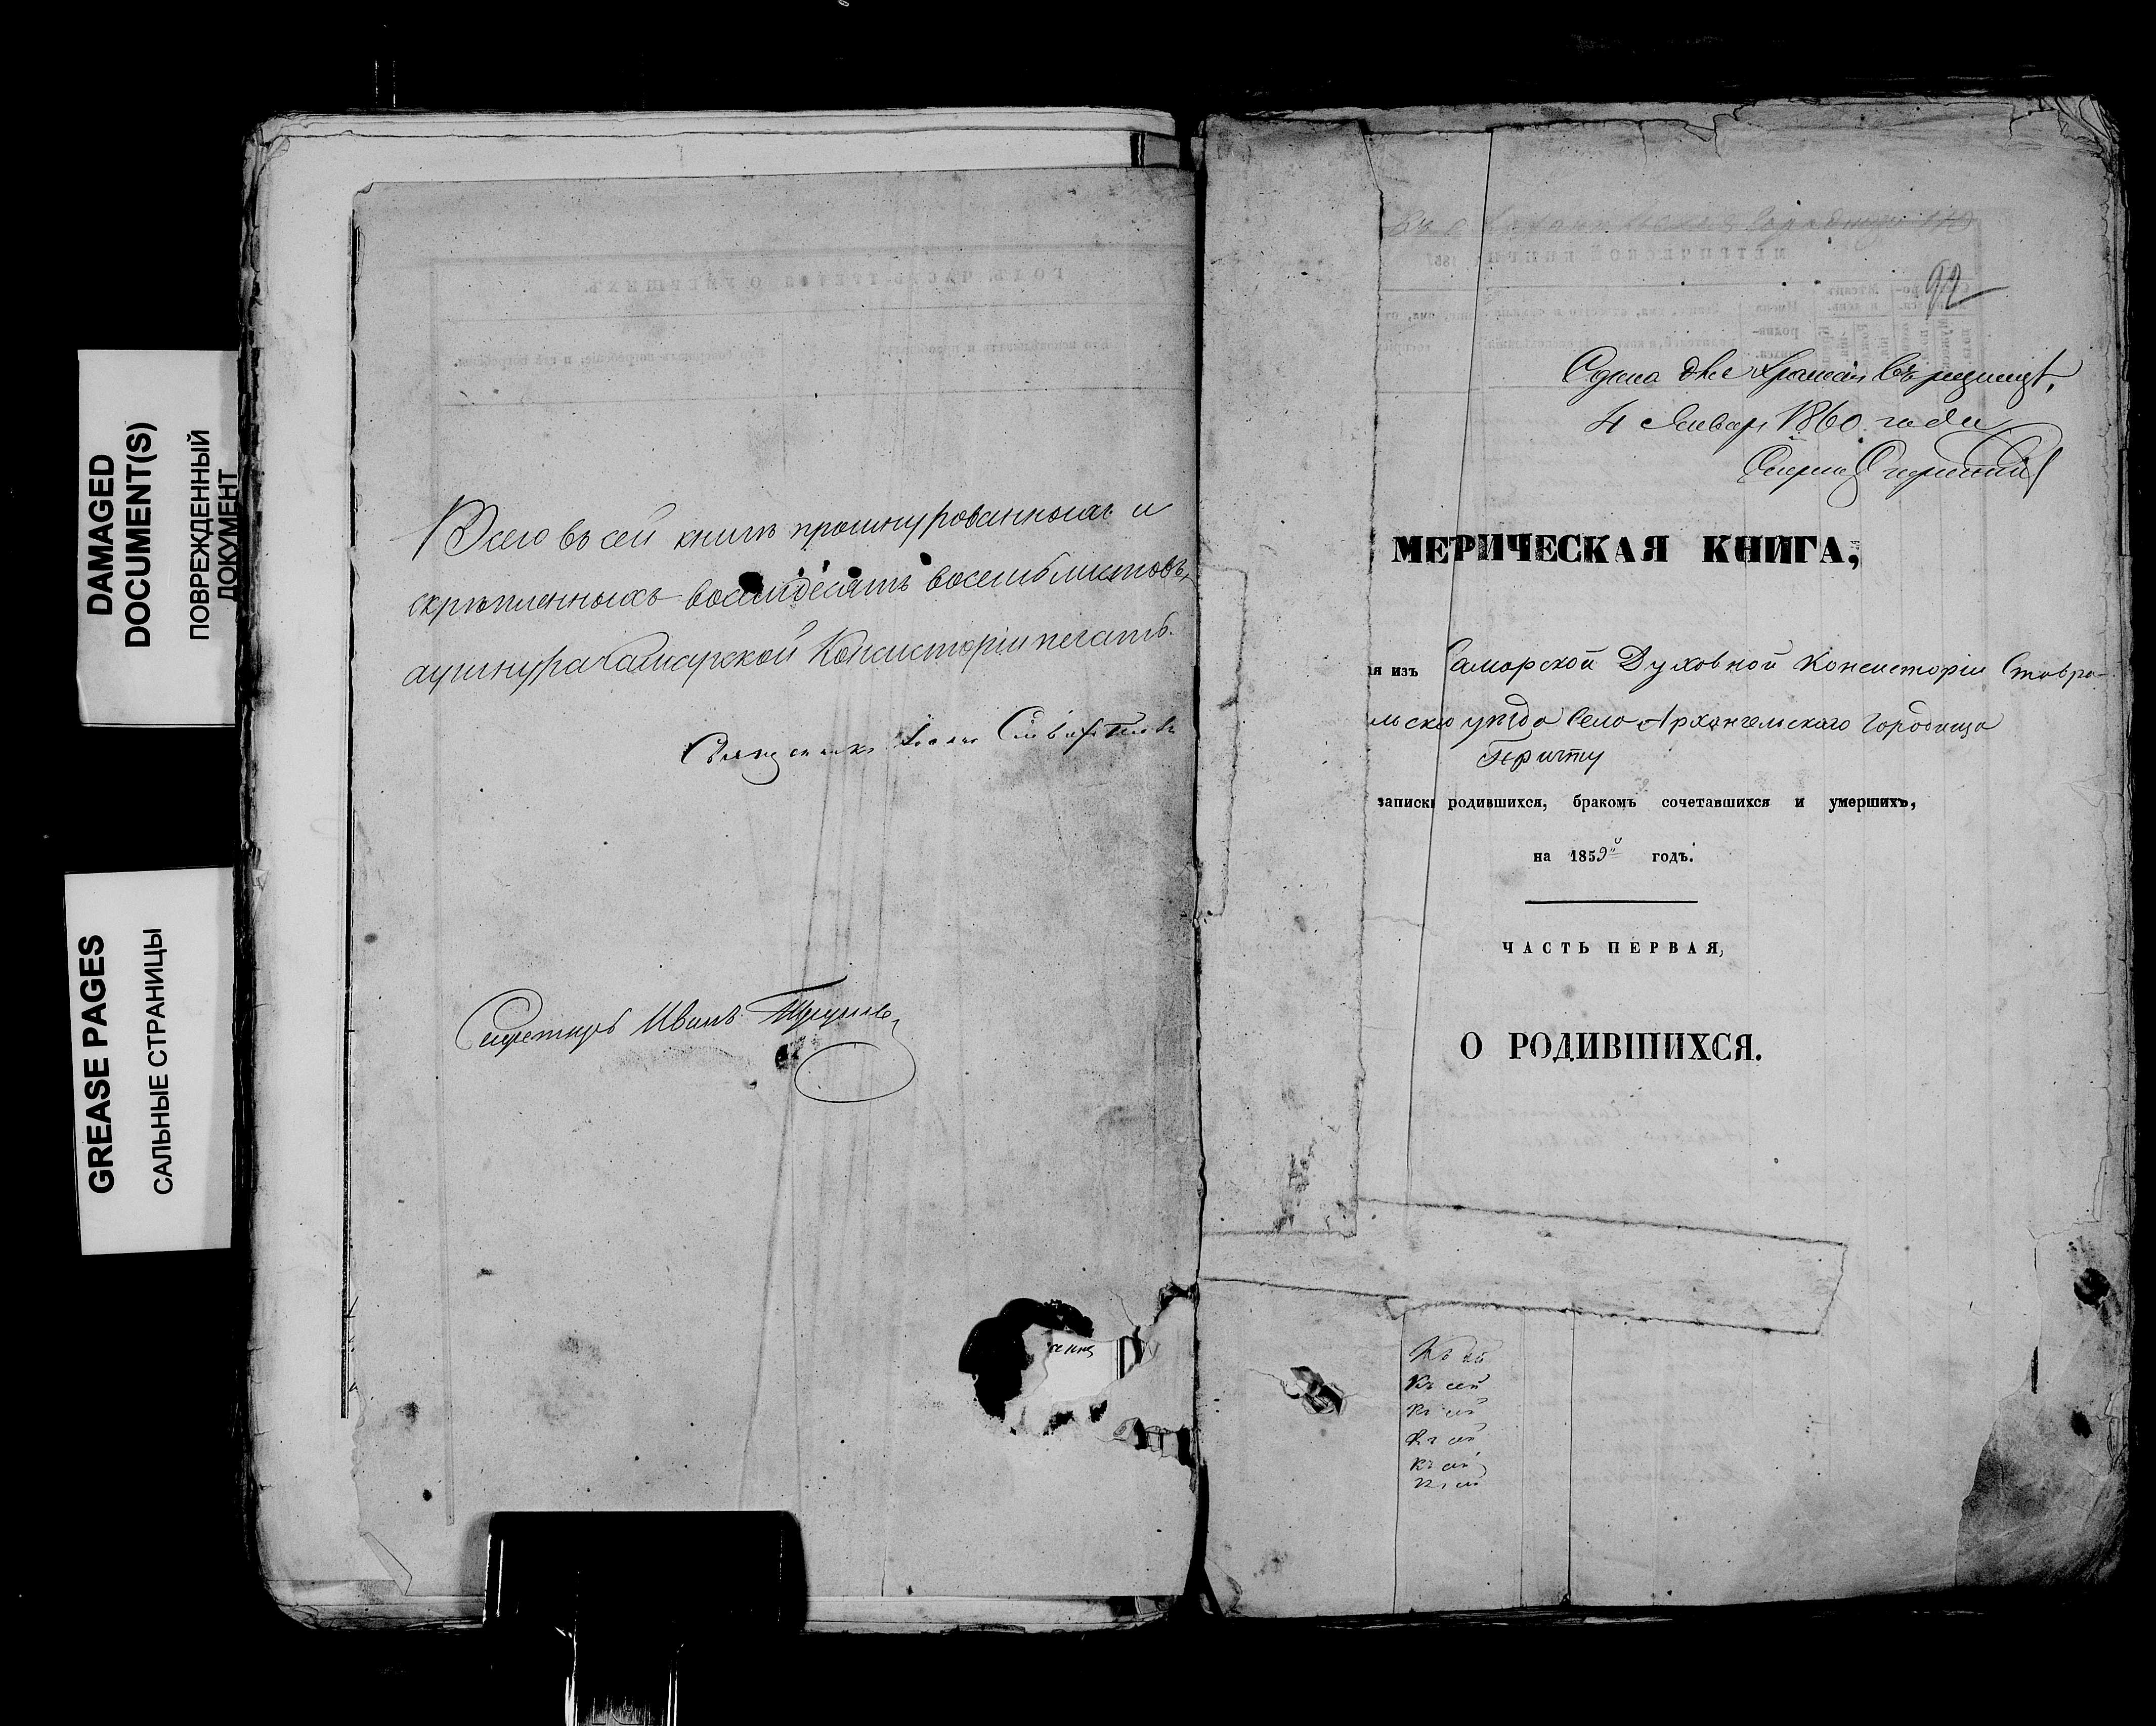 DAMAGED
DOCUMENT(S)
ПОВРЕЖДЕННЫЙ
ДОКУМЕНТ
GREASE PAGES
САЛЬНЫЕ СТРАНИЦЫ
Всего въ сей книгѣ прошнурованныхъ и
скрѣпленныхъ восемдесятъ восемь листовъ,
а у шнура Самарской Консисторіи печать.
Священникъ
Секретарь Иванъ
92
4 Января 1860 года
МЕРИЧЕСКАЯ КНИГА,
ая изъ Самарской Духовной Консисторіи Ставро-
льскго уѣзда Села Архангельскаго Городища
Причту
записки родившихся, бракомъ сочетавшихся и умершихъ,
на 1859й годъ.
ЧАСТЬ ПЕРВАЯ,
О РОДИВШИХСЯ.
Къ сей
Къ сей
Къ сей
Къ сей
Къ сей
Къ сей